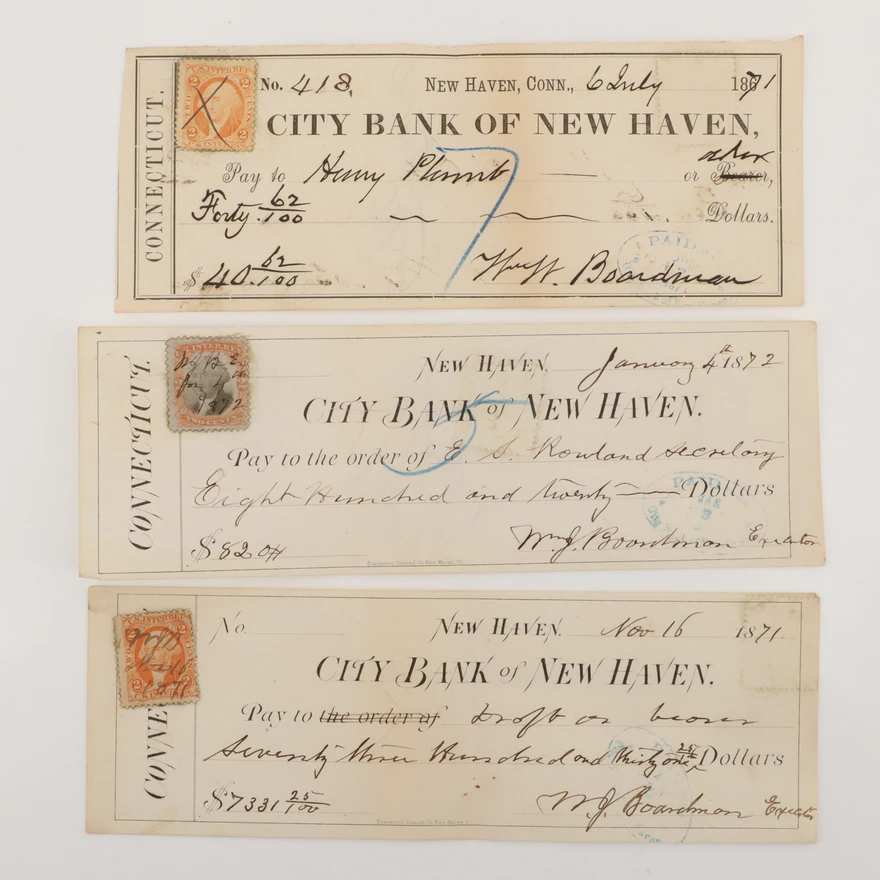 CONNECTICUT.
U.S. INTER. REV.
2 2
No. 418. New Haven, Conn., 6 July 1871
CITY BANK OF NEW HAVEN,
Pay to Henry Plumb or Bearer,
Forty 62/100 Dollars.
$40.62/100 Wm W. Boardman
PAID
CONNECTICUT.
U.S. INTER. REV.
Jan 4
1872
TWO CENTS
New Haven. January 4th 1872
City Bank of New Haven.
Pay to the order of E. S. Rowland Secretary
Eight Hundred and twenty Dollars
$820 Wm J. Boardman Executor
PAID
JAN
CONNE
2 2
1871
No. New Haven. Nov 16 1871
City Bank of New Haven.
Pay to the order of Draft or bearer
Seventy three Hundred and thirty one 25/100 Dollars
$7331 25/100 W. J. Boardman Executor